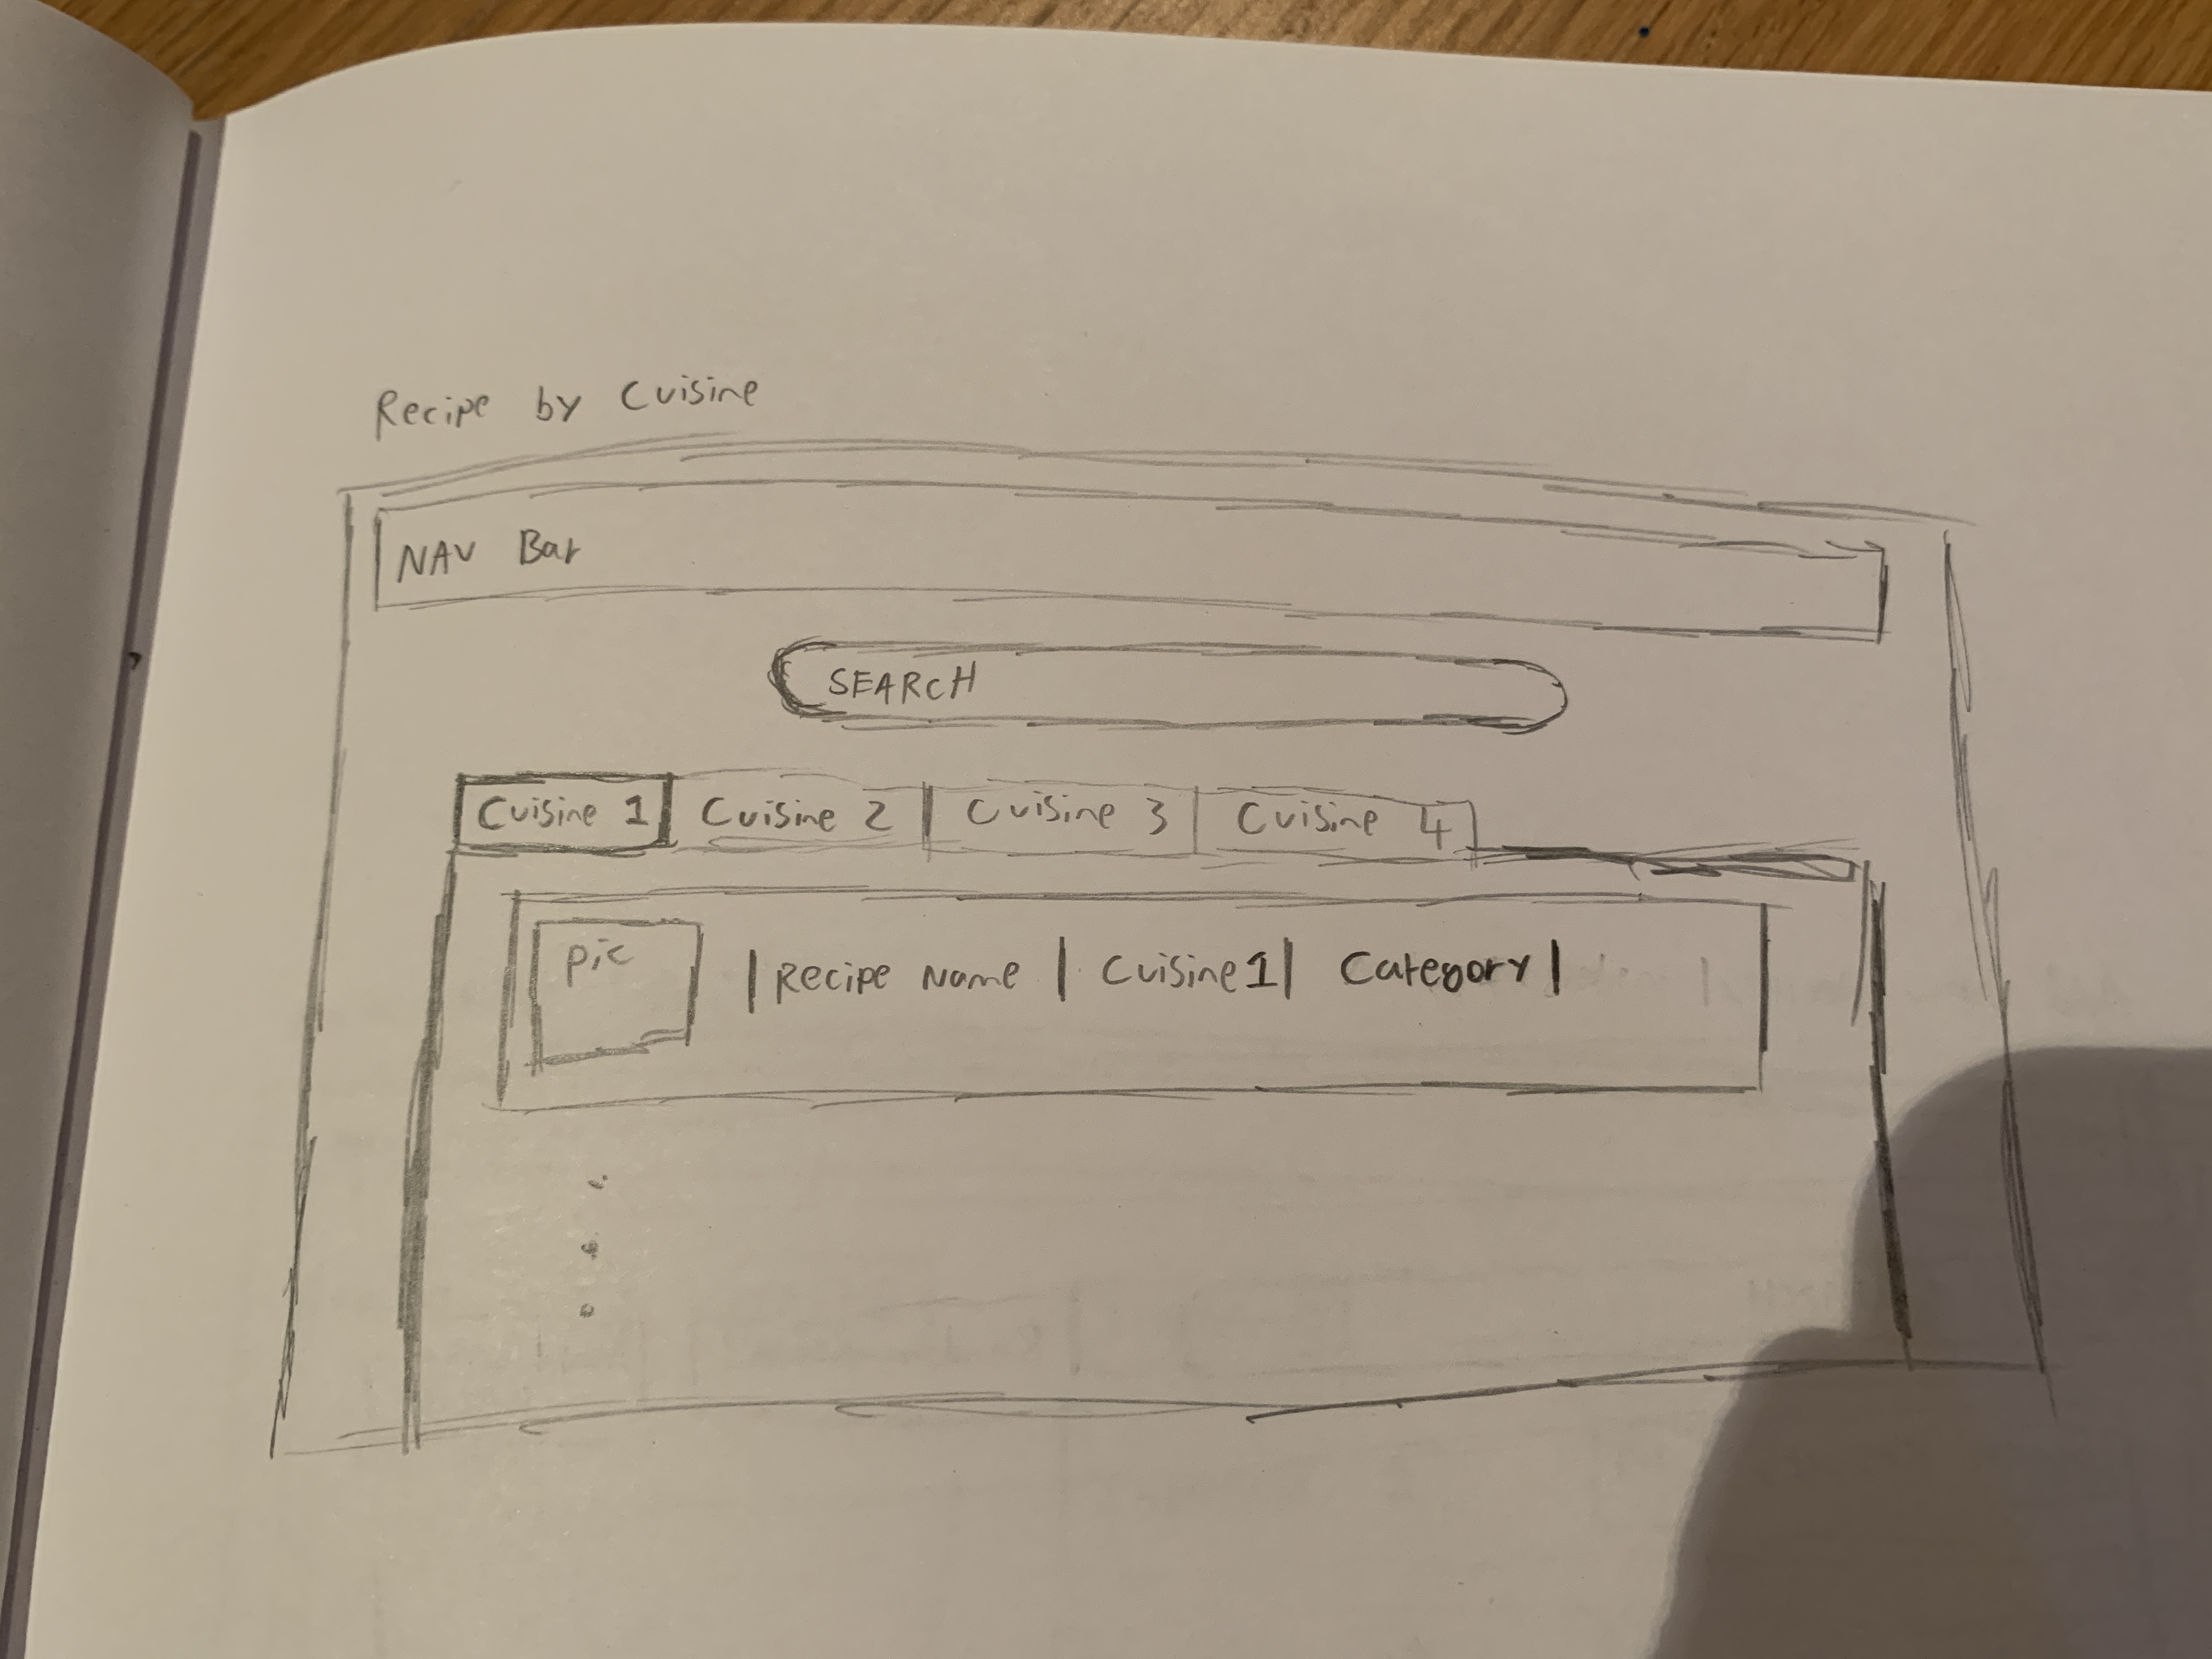 Recipe by Cuisine
NAV Bar
SEARCH
Cuisine 1 Cuisine 2 Cuisine 3 Cuisine 4
pic | Recipe Name | Cuisine1 | Category |